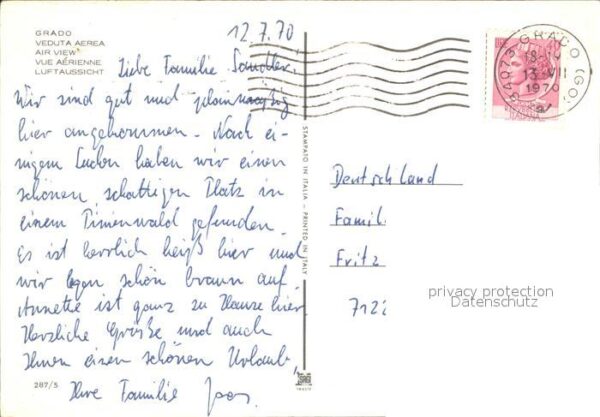 GRADO
VEDUTA AEREA
AIR VIEW
VUE AÉRIENNE
LUFTAUSSICHT
12.7.70
Liebe Familie Sandler,
Wir sind gut und planmäßig
hier angekommen. Nach ei-
nigem Suchen haben wir einen
schönen, schattigen Platz in
einem Pinienwald gefunden.
Es ist herrlich heiß hier und
wir legen schön braun auf.
Annette ist ganz zu Hause hier.
Herzliche Grüße und auch
Ihnen einen schönen Urlaub,
Ihre Familie
287/5
STAMPATO IN ITALIA - PRINTED IN ITALY
34073 GRADO (GO)
13-VII
1970
ITALIANA
Deutschland
Famil
Fritz
7122
privacy protection
Datenschutz